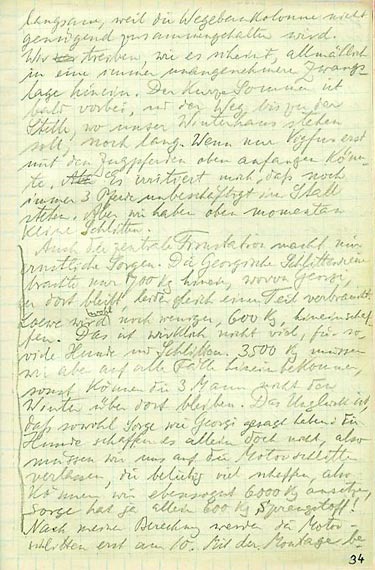 langsam, weil die Wegebaukolonne nicht
genügend zusammengehalten wird.
Wir treiben, wie es scheint, allmählich
in eine immer unangenehmere Zwangs-
lage hinein. Der kurze Sommer ist
bald vorbei, und der Weg bis zu der
Stelle, wo unser Winterhaus stehen
soll, noch lang. Wenn nur Vigfus erst
mit den Zugpferden oben anfangen könn-
te. Es irritiert mich, daß noch
immer 3 Pferde unbeschäftigt im Stall
stehen. Aber wir haben oben momentan
keine Schlitten.
Auch die zentrale Firnstation macht mir
ernstliche Sorgen. Die Georgische Schlittenreise
brachte nur 700 kg hinein, wovon Georgi,
der dort bleibt, leider gleich einen Teil verbraucht.
Loewe wird noch weniger, 600 kg, hineinschaf-
fen. Das ist wirklich nicht viel, für so-
viele Hunde und Schlitten. 3500 kg müssen
wir aber auf alle Fälle hinein bekommen,
sonst können die 3 Mann nicht den
Winter über dort bleiben. Das Unglück ist,
daß sowohl Sorge wie Georgi gesagt haben: die
Hunde schaffen es allein doch nicht, also
müssen wir uns auf die Motorschlitten
verlassen, die beliebig viel schaffen, also
können wir ebensogut 6000 kg ansetzen,
Sorge hat ja allein 600 kg Sprengstoff!
Nach meiner Berechnung werden die Motor-
schlitten erst am 10. mit der Montage be
34